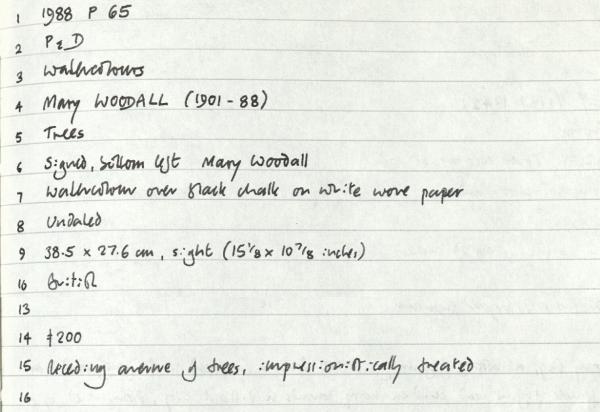 1 1988 P 65
2 P & D
3 Watercolours
4 Mary WOODALL (1901-88)
5 Trees
6 Signed, bottom left Mary Woodall
7 Watercolour over black chalk on white wove paper
8 Undated
9 38.5 x 27.6 cm, sight (15 1/8 x 10 7/8 inches)
10 British
13
14 £200
15 Receding avenue of trees, impressionistically treated
16